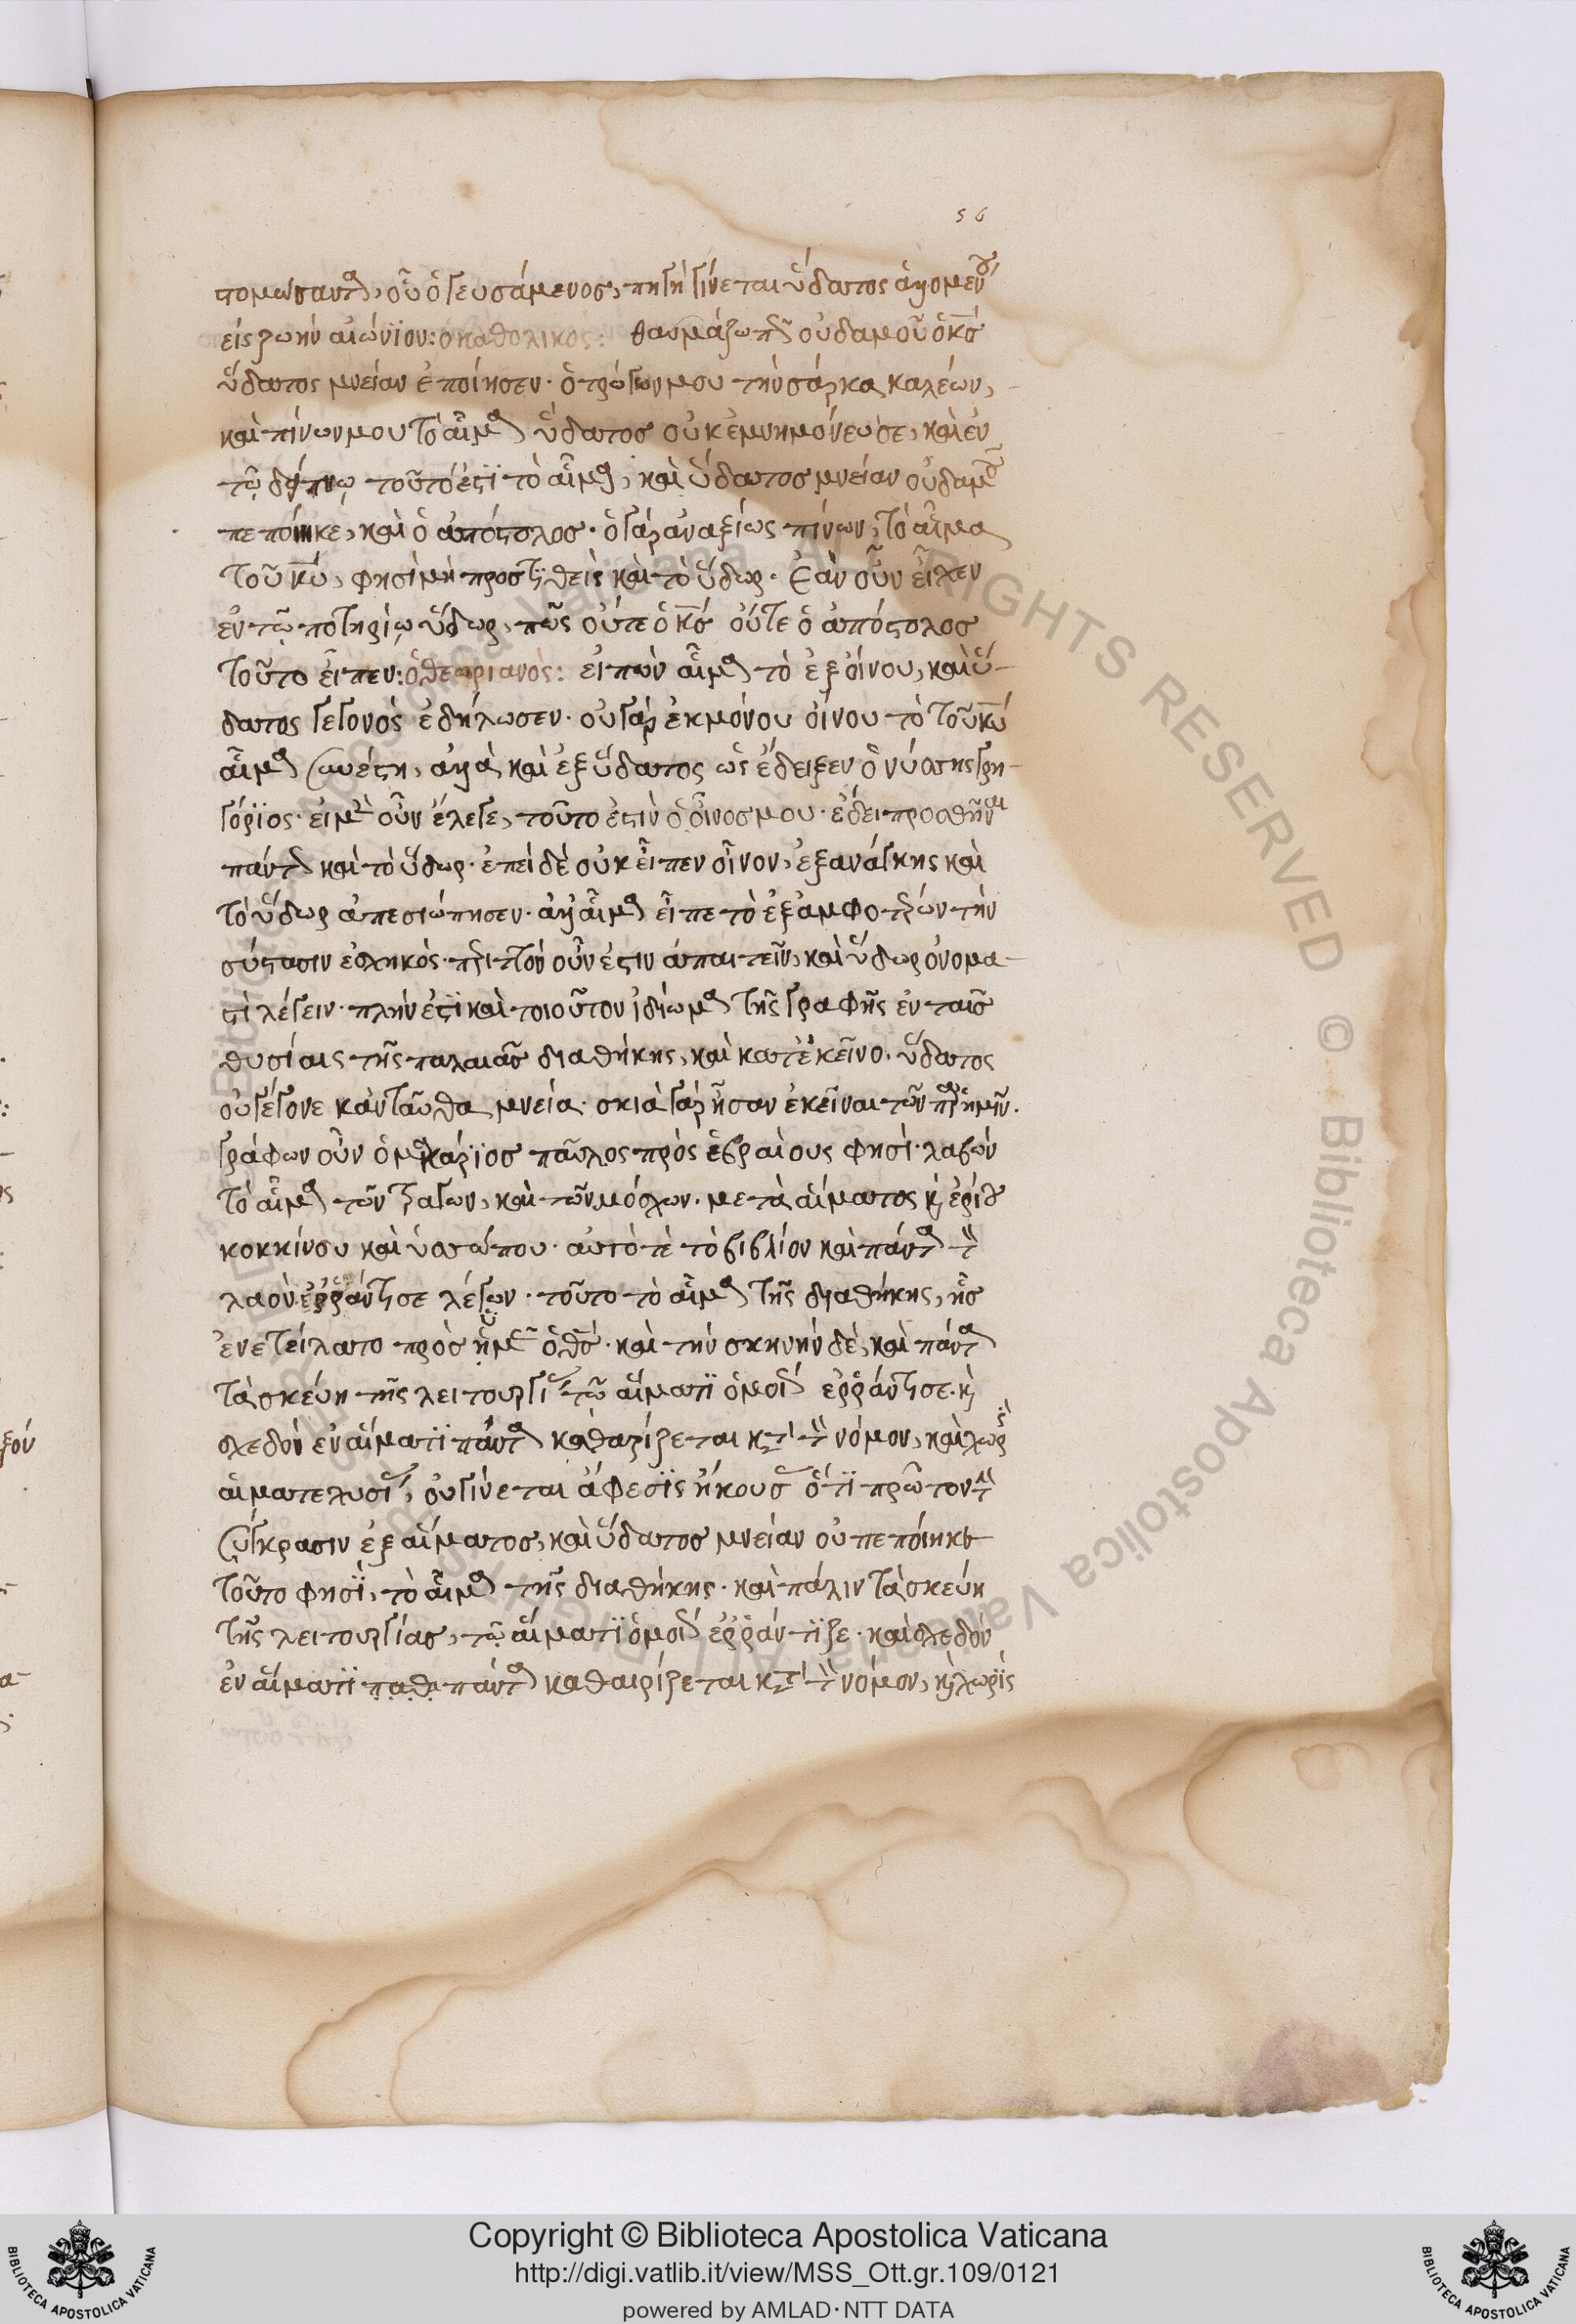 56
στομωσαντα, οὗ ὁ γευσάμενος, πηγὴ γίνεται ὕδατος ἁλλομένου
εἰς ζωὴν αἰώνϊον: ὁ καθολικός: θαυμάζω πῶς οὐδαμοῦ ὁ κς
ὕδατος μνείαν ἐποίησεν· ὁ τρώγων μου τὴν σάρκα καλέων,
καὶ πίνων μου τὸ αἷμα ὕδατος οὐκ ἐμνημόνευσε, καὶ ἐν
τῷ δείπνῳ τοῦτό ἐστϊ τὸ αἷμα, καὶ ὕδατος μνείαν οὐδαμοῦ
πεποίηκε, καὶ ὁ ἀπόστολος· ὁ γὰρ ἀναξίως πίνων, τὸ αἷμα
τοῦ κυ, φησὶ μὴ προστιθεὶς καὶ τὸ ὕδωρ· ἐὰν οὖν εἶχεν
ἐν τῷ ποτηρίῳ ὕδωρ, πῶς οὔτε ὁ κς οὔτε ὁ ἀπόστολος
τοῦτο εἶπεν: ὁ θεωριανός: εἰπὼν αἷμα τὸ ἐξ οἴνου, καὶ ὕ-
δατος γεγονὸς ἐδήλωσεν· οὐ γὰρ ἐκ μόνου οἴνου τὸ τοῦ κυ
αἷμα συνέστη, ἀλλὰ καὶ ἐξ ὕδατος ὡς ἔδειξεν ὁ νύσσης γρη-
γόρϊος· εἰ μὲν οὖν ἔλεγε, τοῦτο ἐστὶν ὁ οἶνος μου· ἔδει προσθῆναι
πάντως καὶ τὸ ὕδωρ· ἐπεὶ δὲ οὐκ εἶπεν οἶνον, ἐξ ἀνάγκης καὶ
τὸ ὕδωρ ἀπεσιώπησεν· ἀλλ' αἷμα εἶπε τὸ ἐξ ἀμφοτέρων τὴν
σύστασιν ἐσχηκός· περιττὸν οὖν ἐστιν ἀπαιτεῖν, καὶ ὕδωρ ὀνομα-
στὶ λέγειν· πλὴν ἐστϊ καὶ τοιοῦτον ἰδίωμα τῆς γραφῆς ἐν ταῖς
θυσίαις τῆς παλαιᾶς διαθήκης, καὶ κατ' ἐκεῖνο. ὕδατος
οὐ γέγονε κἀνταῦθα μνεία· σκιὰ γὰρ ἦσαν ἐκεῖναι τῶν παρ' ἡμῖν.
γράφων οὖν ὁ μακάρϊος παῦλος πρὸς ἑβραίους φησί· λαβὼν
τὸ αἷμα τῶν τράγων, καὶ τῶν μόσχων. μετὰ αἵματος κ ἐρίου
κοκκίνου καὶ ὑσσώπου· αὐτό τε τὸ βιβλίον καὶ πάντα τὸν
λαὸν ἐρράντισε λέγων· τοῦτο τὸ αἷμα τῆς διαθήκης, ἧς
ἐνετείλατο πρὸς ὑμᾶς ὁ θς· καὶ τὴν σκηνὴν δὲ, καὶ πάντα
τὰ σκεύη τῆς λειτουργίας τῷ αἵματϊ ὁμοίως ἐρράντισε. κ
σχεδὸν ἐν αἵματϊ πάντα καθαρίζεται κατὰ τὸν νόμον, καὶ χωρὶς
αἱματεχυσίας, οὐ γίνεται ἄφεσϊς ἤκουσας ὅτϊ πρῶτον τὴν
σύγκρασιν ἐξ αἵματος, καὶ ὕδατος μνείαν οὐ πεποίηκε
τοῦτο φησϊ, τὸ αἷμα τῆς διαθήκης· καὶ πάλιν τὰ σκεύη
τῆς λειτουργίας, τῷ αἵματϊ ὁμοίως ἐρράντϊζε· καὶ σχεδὸν
ἐν αἵματϊ παθα πάντα καθαιρίζεται κατὰ τὸν νόμον, κ χωρὶς
Copyright © Biblioteca Apostolica Vaticana
http://digi.vatlib.it/view/MSS_Ott.gr.109/0121
powered by AMLAD · NTT DATA
BIBLIOTECA APOSTOLICA VATICANA
BIBLIOTECA APOSTOLICA VATICANA